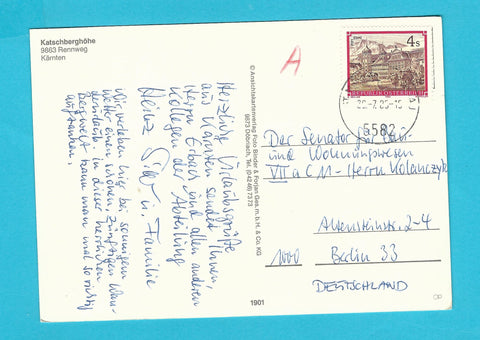 Katschberghöhe
9863 Rennweg
Kärnten
A
4 S
REPUBLIK ÖSTERREICH
5582
Herzliche Urlaubsgrüße
aus Kärnten sendet Ihnen,
Herrn Erbach und allen anderen
Kollegen der Abteilung
Heinz u. Familie
Wir verleben hier bei sonnigem
Wetter einen schönen zünftigen Wan-
derurlaub in dieser herrlichen
Bergwelt kann man mal so richtig
© Ansichtskartenverlag Foto Binder & Forjan Ges. m. b. H. & Co. KG
9873 Döbriach, Tel. (04246) 7373
1901
Der Senator für Bau-
und Wohnungswesen
VII a C 11 - Herrn
Altensteinstr. 2-4
1000 Berlin 33
DEUTSCHLAND